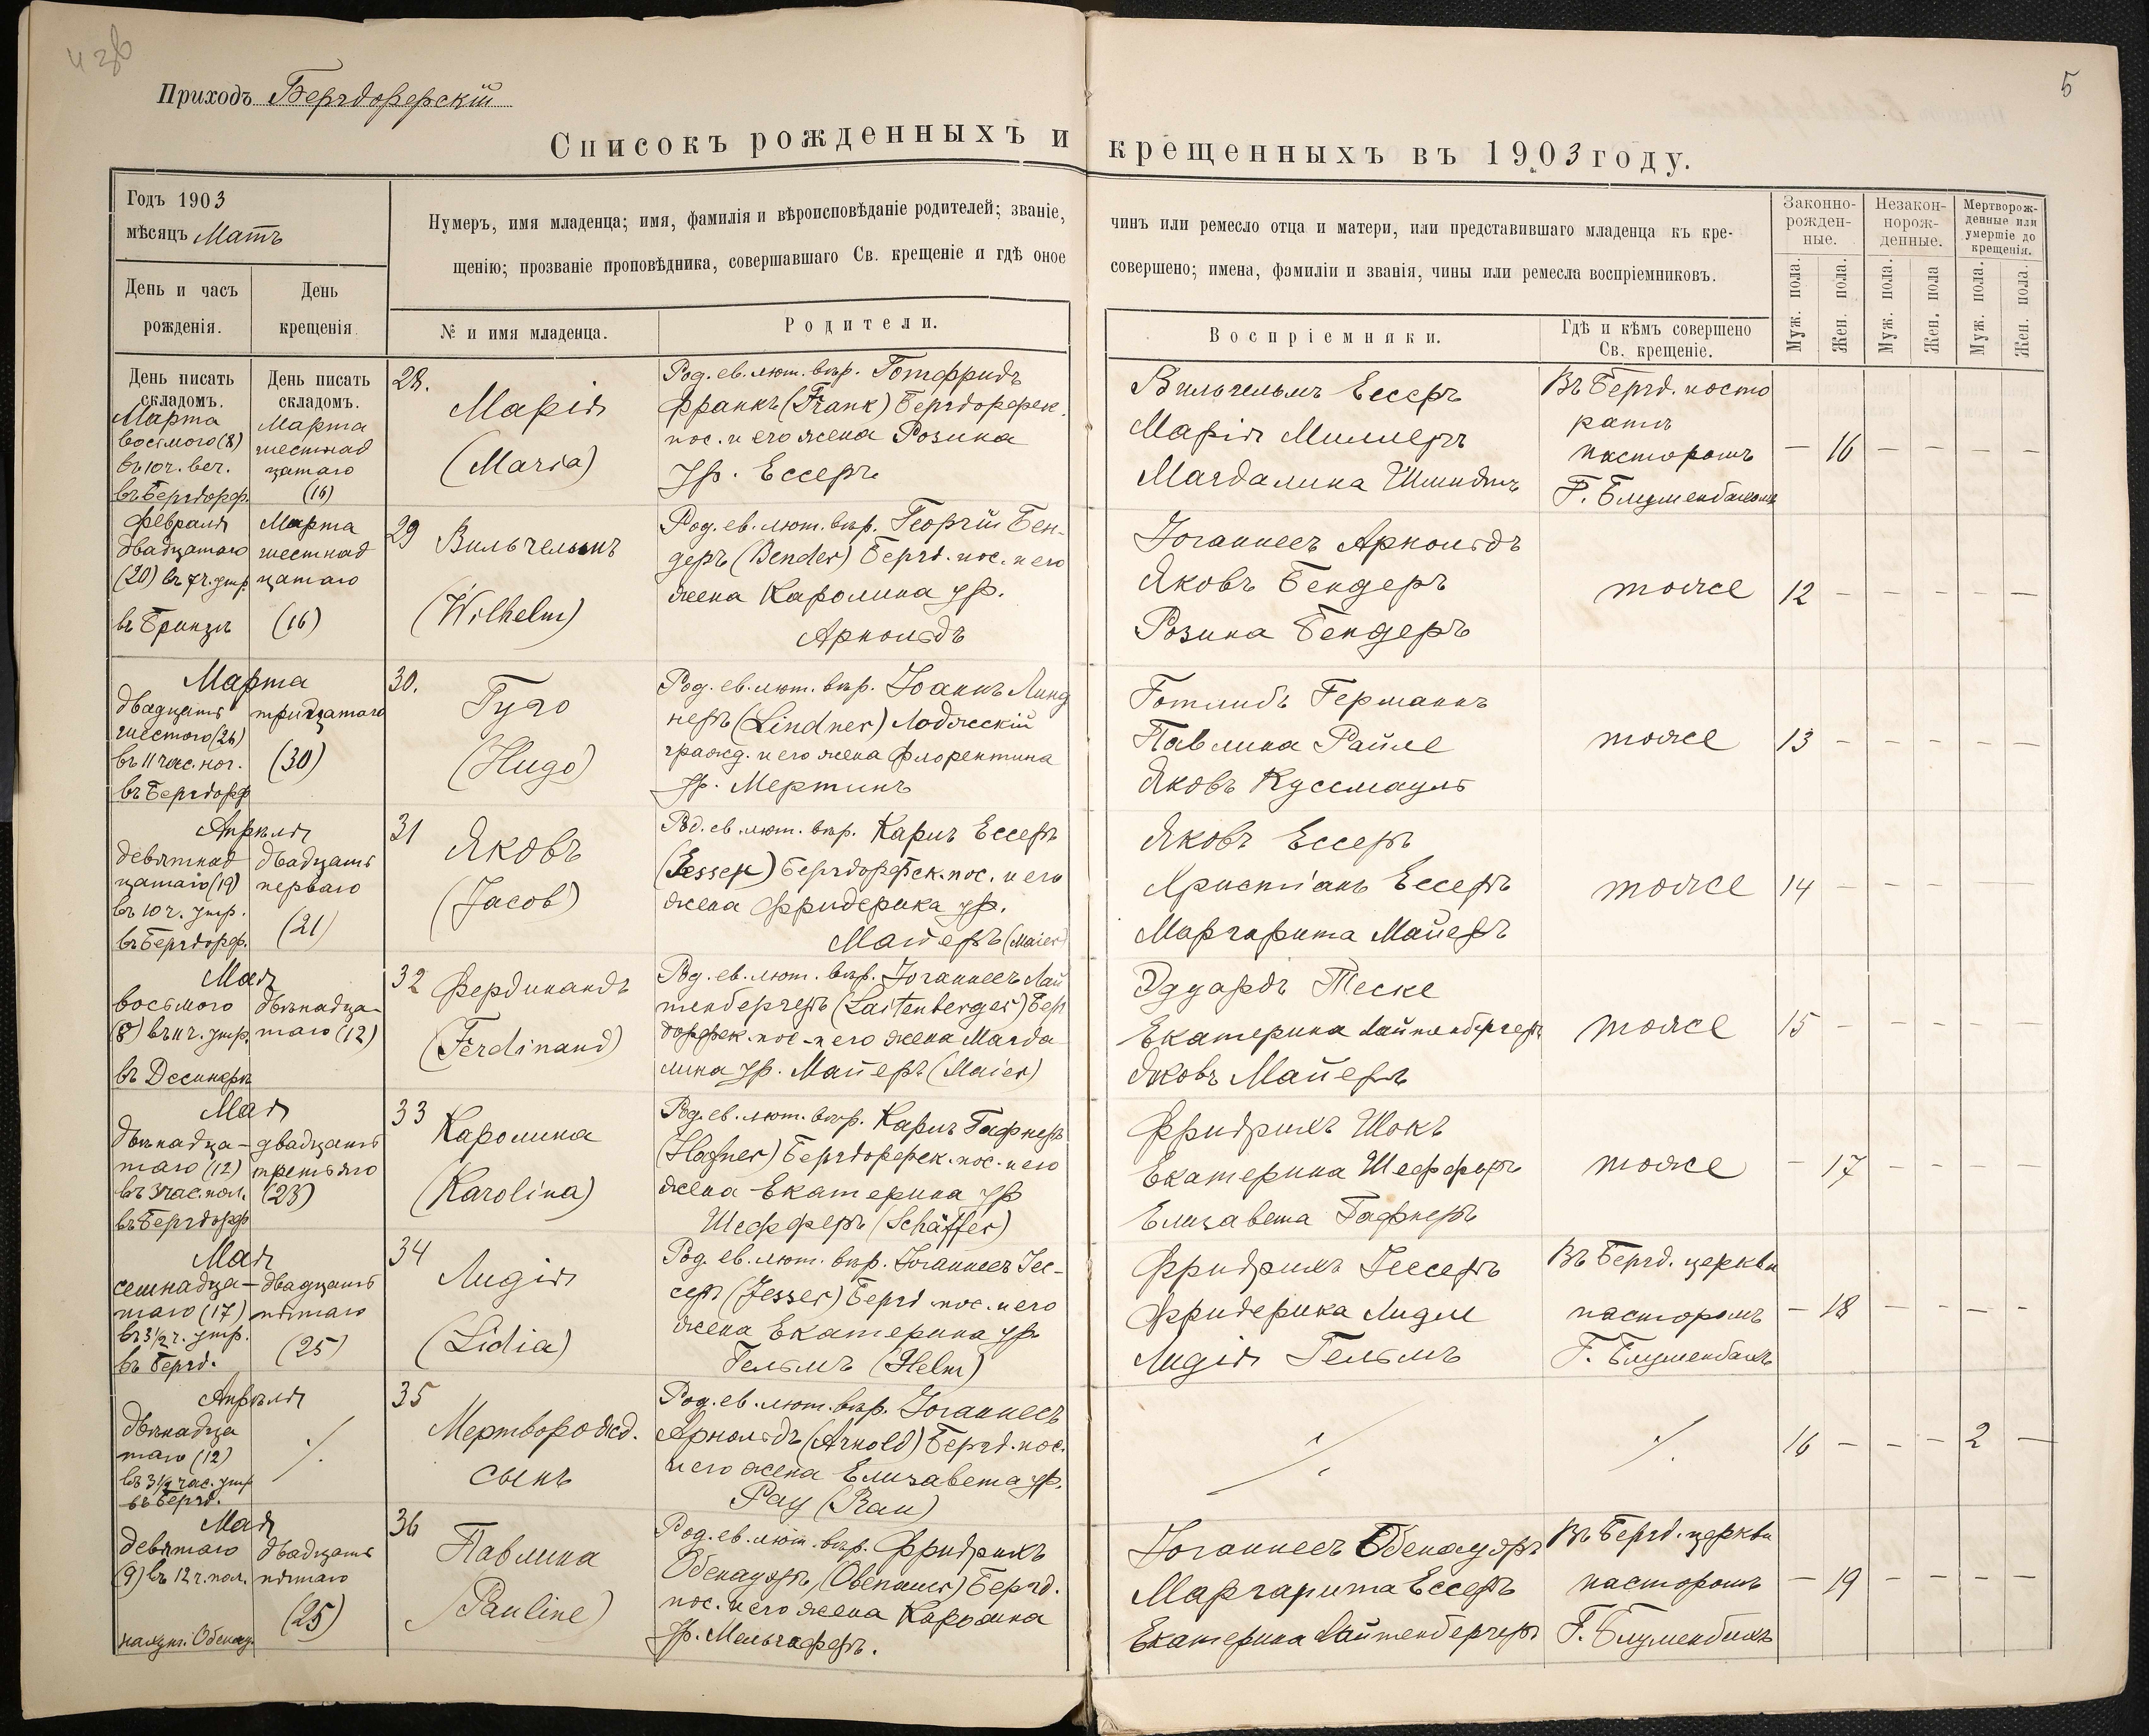 5
Приходъ Бергдорфскій
Списокъ рожденныхъ и крещенныхъ въ 1903 году.
Годъ 1903
мѣсяцъ
День и часъ
рожденія.
День
крещенія
Нумеръ, имя младенца; имя, фамилія и вѣроисповѣданіе родителей; званіе,
щенію; прозваніе проповѣдника, совершавшаго Св. крещеніе и гдѣ оное
№ и имя младенца.
Родители.
чинъ или ремесло отца и матери, или представившаго младенца къ кре-
совершено; имена, фамиліи и званія, чины или ремесла воспріемниковъ.
Воспріемники.
Гдѣ и кѣмъ совершено
Св. крещеніе.
Законно-
рожден-
ные.
Незакон-
норож-
денные.
Мертворож-
денные или
умершіе до
крещенія.
Муж. пола.
Жен. пола.
Муж. пола.
Жен. пола
Муж. пола.
Жен. пола.
День писать
складомъ.
День писать
складомъ.
Марта
восьмого (8)
въ 10 ч. веч.
въ Бергдорф.
Марта
шестнад
цатаго
(16)
28.
Марія
(Maria)
Род. ев. лют. вѣр. Готфридъ
Франкъ (Frank) Бергдорфск.
пос. и его жена Розина
ур. Ессеръ
Вильгельмъ Ессеръ
Марія Миллеръ
Магдалина Шмидтъ
Въ Бергд. пасто
ратѣ
пасторомъ
Г. Блуменбахомъ
– 16 – – – –
Февраля
двадцатаго
(20) въ 7 ч. утр.
въ
Марта
шестнад
цатаго
(16)
29
Вильгельмъ
(Wilhelm)
Род. ев. лют. вѣр. Георгій Бен-
деръ (Bender) Бергд. пос. и его
жена Каролина ур.
Арнольдъ
Іоганнесъ Арнольдъ
Яковъ Бендеръ
Розина Бендеръ
тоже
12 – – – – –
Марта
двадцать
шестого (26)
въ 11 час. ноч.
въ Бергдорф
тридцатаго
(30)
30.
Гуго
(Hugo)
Род. ев. лют. вѣр. Іоаннъ Линд
неръ (Lindner) Лодзскій
гражд. и его жена Флорентина
ур. Мертинъ
Готлибъ Германнъ
Павлина Райле
Яковъ Куссмауль
тоже
13 – – – – –
Апрѣля
девятнад
цатаго (19)
въ 10 ч. утр.
въ Бергдорф.
двадцать
перваго
(21)
31
Яковъ
(Jacob)
Род. ев. лют. вѣр. Карлъ Ессеръ
(Jesser) Бергдорфск. пос. и его
жена Фридерика ур.
Майеръ (Maier)
Яковъ Ессеръ
Христіанъ Ессеръ
Маргарита Майеръ
тоже
14 – – – – –
Мая
восьмого
(8) въ 11 ч. утр.
въ
двѣнадца-
таго (12)
32
Фердинандъ
(Ferdinand)
Род. ев. лют. вѣр. Іоганнесъ Лай
тенбергеръ (Laitenberger) Берг
дорфск. пос. и его жена Магда
лина ур. Майеръ (Maier)
Эдуардъ Теске
Екатерина Лайтенбергеръ
Яковъ Майеръ
тоже
15 – – – – –
Мая
двѣнадца-
таго (12)
въ 3 час. пол.
въ Бергдорф
двадцать
третьяго
(23)
33
Каролина
(Karolina)
Род. ев. лют. вѣр. Карлъ Гафнеръ
(Hafner) Бергдорфск. пос. и его
жена Екатерина ур
Шефферъ (Schäffer)
Фридрихъ Шокъ
Екатерина Шефферъ
Елизавета Гафнеръ
тоже
– 17 – – – –
Мая
семнадца-
таго (17)
въ 3½ ч. утр.
въ Бергд.
двадцать
пятаго
(25)
34
Лидія
(Lidia)
Род. ев. лют. вѣр. Іоганнесъ Іес-
серъ (Jesser) Бергд. пос. и его
жена Екатерина ур
Гельмъ (Helm)
Фридрихъ Іессеръ
Фридерика Лидле
Лидія Гельмъ
Въ Бергд. церкви
пасторомъ
Г. Блуменбахъ
– 18 – – – –
Апрѣля
двѣнадца
таго (12)
въ 3½ час. утр
въ Бергд.
35
Мертворожд.
сынъ
Род. ев. лют. вѣр. Іоганнесъ
Арнольдъ (Arnold) Бергд. пос.
и его жена Елизавета ур.
Рау (Rau)
16 – – – 2 –
Мая
девятаго
(9) въ 12 ч. пол.
двадцать
пятаго
(25)
36
Павлина
(Pauline)
Род. ев. лют. вѣр. Фридрихъ
Обенауеръ (Obenauer) Бергд.
пос. и его жена Каролина
ур. Мельгафъ.
Іоганнесъ Обенауеръ
Маргарита Ессеръ
Екатерина Лайтенбергеръ
Въ Бергд. церкви
пасторомъ
Г. Блуменбахъ
– 19 – – – –